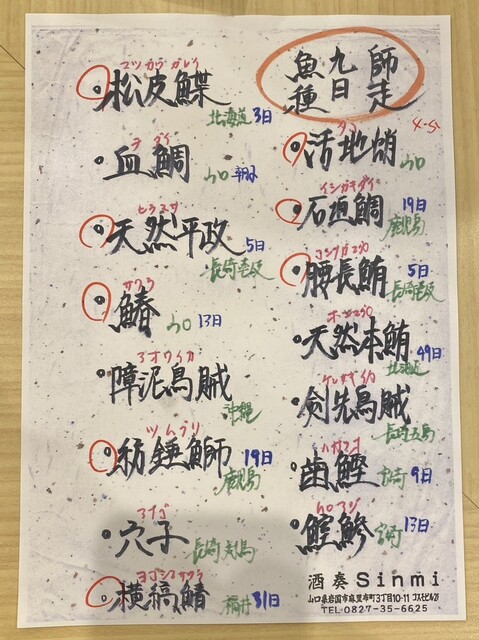 師走
九日
魚種
マツカワガレイ
松皮鰈
北海道 3日
チダイ
血鯛
山口
ヒラマサ
天然平政
5日
長崎壱岐
サワラ
鰆
山口 13日
アオリイカ
障泥烏賊
沖縄
ツムブリ
紡錘鰤
19日
鹿児島
アナゴ
穴子
長崎対馬
ヨコシマサワラ
横縞鰆
福井 31日
タコ
活地蛸
山口
イシガキダイ
石垣鯛
19日
鹿児島
コシナガマグロ
腰長鮪
5日
長崎壱岐
ホンマグロ
天然本鮪
49日
北海道
ケンサキイカ
剣先烏賊
長崎五島
ハガツオ
歯鰹
宮崎 9日
ムロアジ
室鯵
13日
宮崎
酒奏 Sinmi
山口県岩国市麻里布町3丁目10-11 コスモビル2F
TEL 0827-35-6625